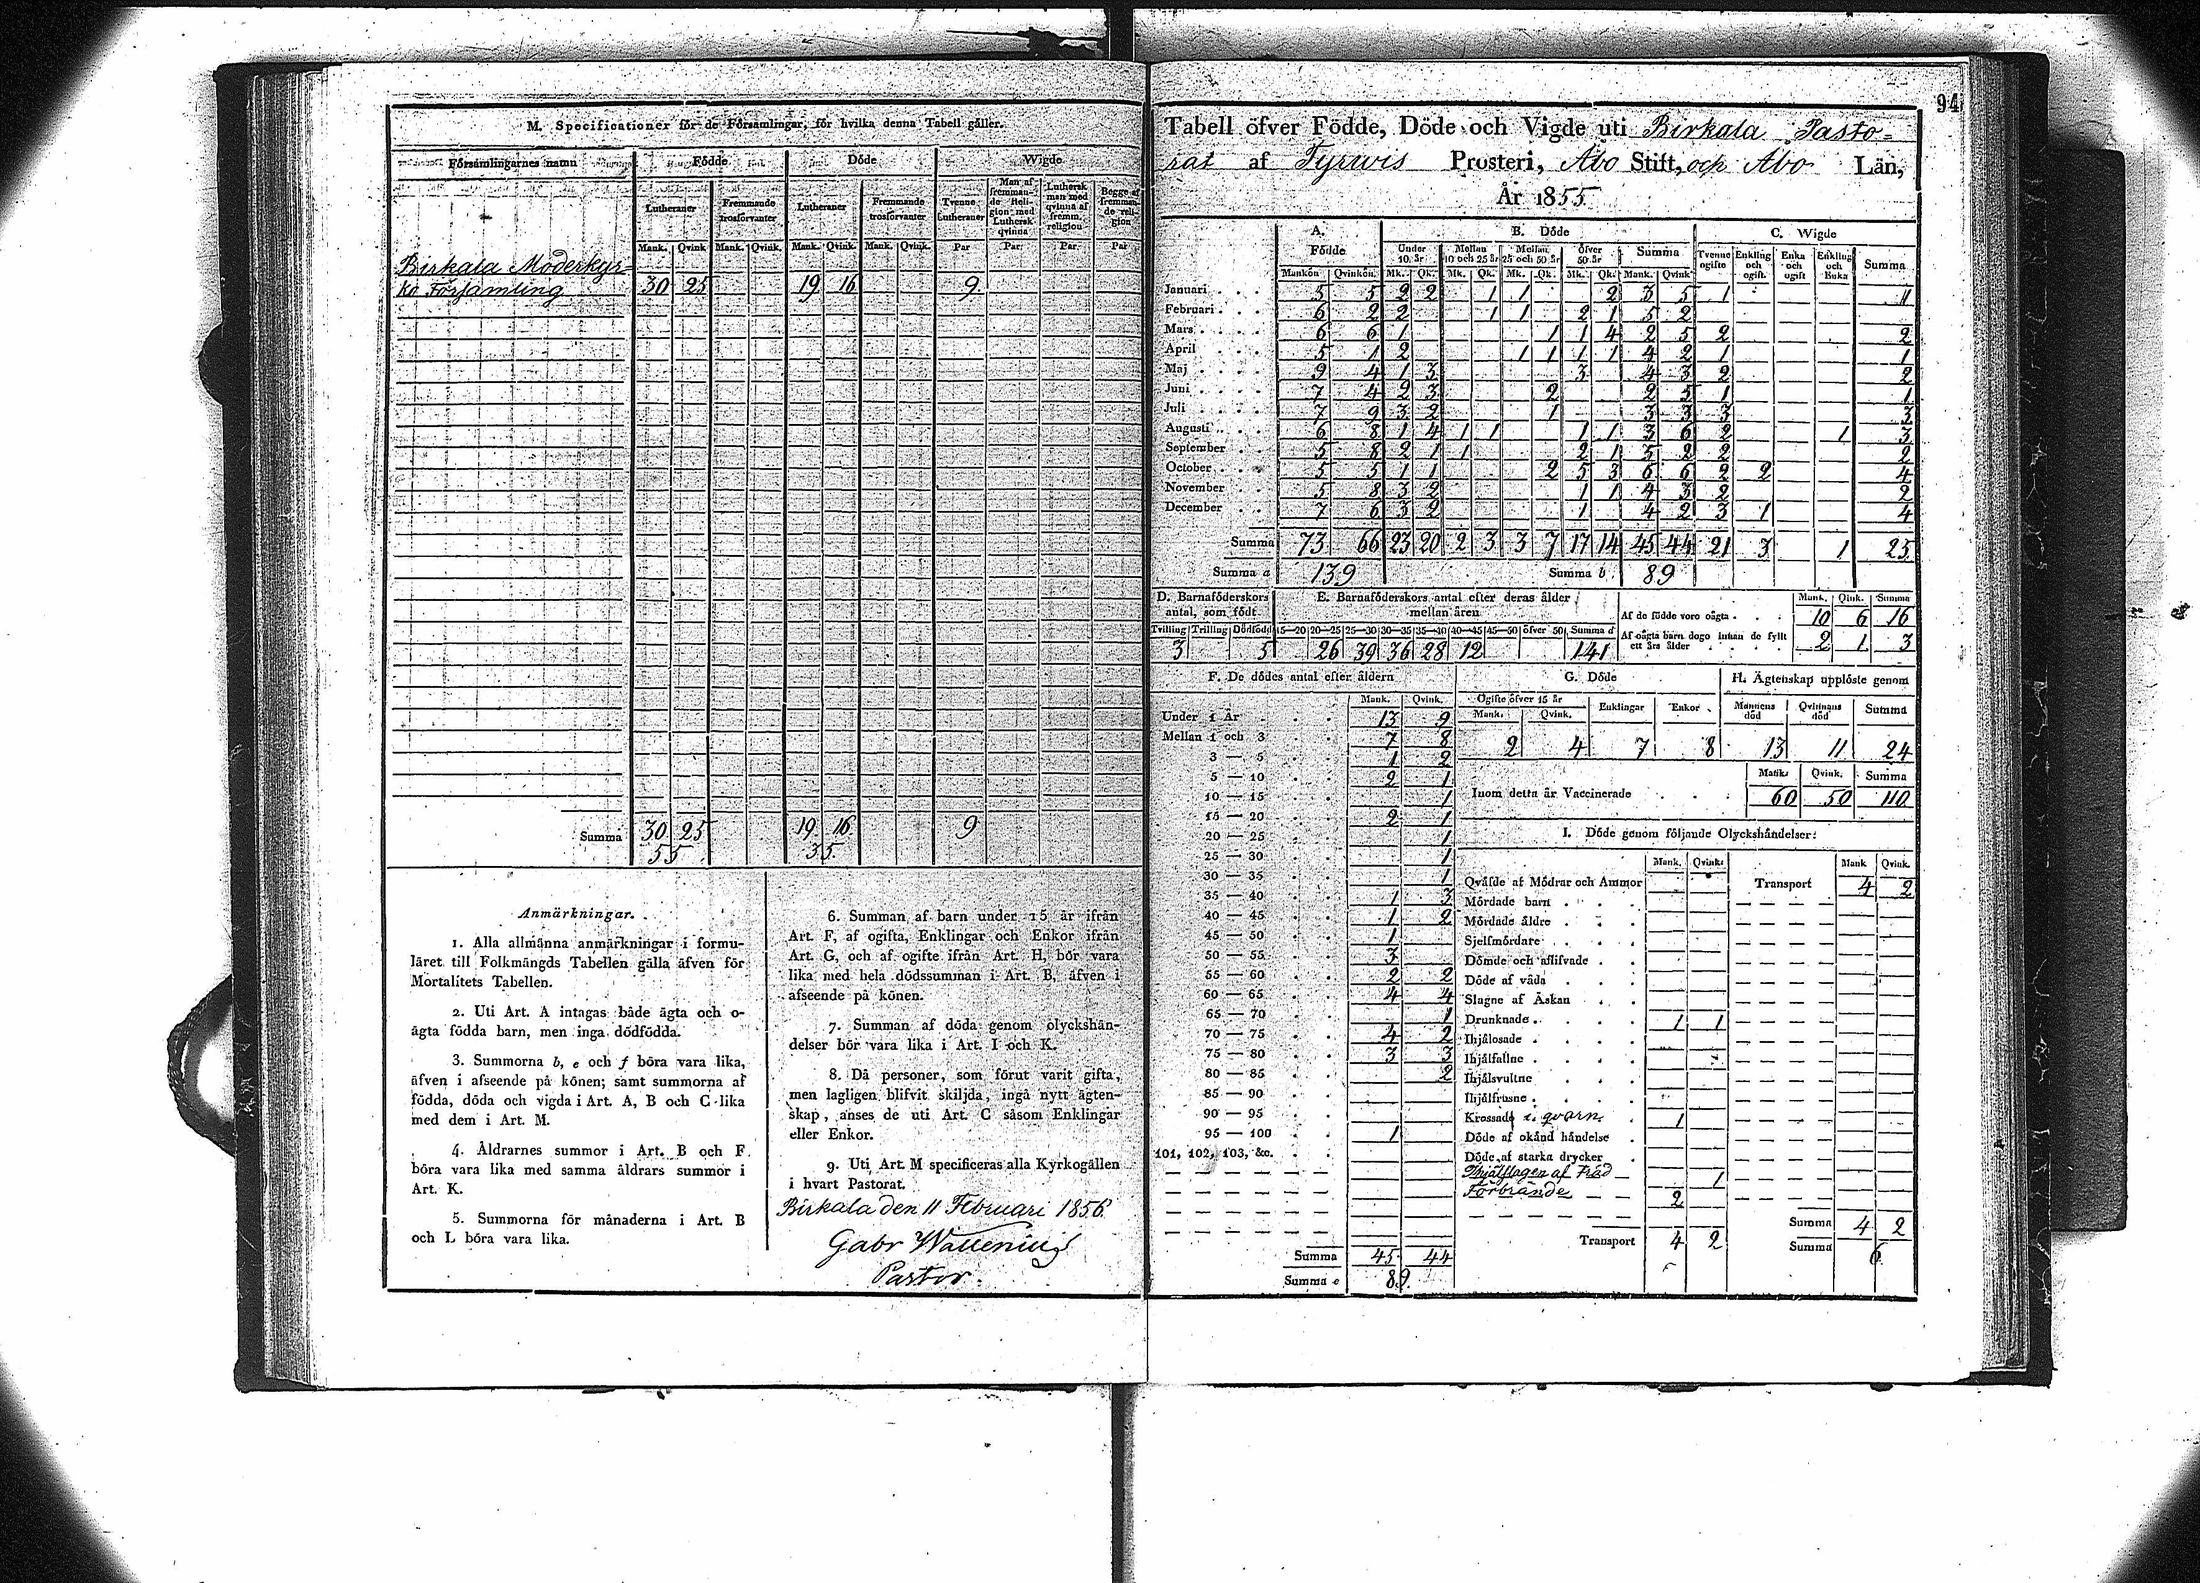 M. Specificationer för de Församlingar, för hvilka denna Tabell gäller.
Församlingarnes namn Födde Döde Wigde
Lutheraner Fremmande trosförvanter Lutheraner Fremmande trosförvanter Tvenne Lutheraner Man af fremmande Religion med Luthersk qvinna Luthersk man med qvinna af fremm. religion Begge af fremmande religion
Mank. Qvink Mank. Qvink. Mank. Qvink. Mank. Qvink. Par Par. Par. Par
Birkala Moderkyr-
ko Församling 30 25 19 16 9
Summa 30 25 19 16 9
55 35.
Anmärkningar.
1. Alla allmänna anmärkningar i formu-
läret till Folkmängds Tabellen gälla äfven för
Mortalitets Tabellen.
2. Uti Art. A intagas både ägta och o-
ägta födda barn, men inga dödfödda.
3. Summorna b, e och f böra vara lika,
äfven i afseende på könen; samt summorna af
födda, döda och vigda i Art. A, B och C lika
med dem i Art. M.
4. Åldrarnes summor i Art. B och F
böra vara lika med samma åldrars summor i
Art. K.
5. Summorna för månaderna i Art. B
och L böra vara lika.
6. Summan af barn under 15 år ifrån
Art. F, af ogifta, Enklingar och Enkor ifrån
Art. G, och af ogifte ifrån Art. H, bör vara
lika med hela dödssumman i Art. B, äfven i
afseende på könen.
7. Summan af döda genom olyckshän-
delser bör vara lika i Art. I och K.
8. Då personer, som förut varit gifta,
men lagligen blifvit skiljda, ingå nytt ägten-
skap, anses de uti Art. C såsom Enklingar
eller Enkor.
9. Uti Art. M specificeras alla Kyrkogällen
i hvart Pastorat.
Birkala den 11 Februari 1856.
Gabr Wallenius
Pastor.
94
Tabell öfver Födde, Döde och Vigde uti Birkala Pasto-
rat af Tyrwis Prosteri, Åbo Stift, och Åbo Län,
År 1855
A. Födde B. Döde C. Wigde
Under 10 år Mellan 10 och 25 år Mellan 25 och 50 år öfver 50 år Summa Tvenne ogifte Enkling och ogift Enka och ogift Enkling och Enka Summa
Mankön Qvinkön. Mk. Qk. Mk. Qk. Mk. Qk. Mk. Qk. Mank. Qvink
Januari 5 5 2 2 1 1 2 3 5 1 1
Februari 6 2 2 1 1 2 1 5 2
Mars 6 6 1 1 1 4 2 5 2 2
April 5 1 2 1 1 1 1 4 2 1 1
Maj 9 4 1 3 3 4 3 2 2
Juni 7 4 2 3 2 2 5 1 1
Juli 7 9 3 2 1 3 3 3 3
Augusti 6 8 1 4 1 1 1 1 3 6 2 1 3
September 5 8 2 1 1 2 1 5 2 2 2
October 5 5 1 1 2 5 3 6 6 2 2 4
November 5 8 3 2 1 1 4 3 2 2
December 7 6 3 2 1 4 2 3 1 4
Summa 73 66 23 20 2 3 3 7 17 14 45 44 21 3 1 25
Summa a 139 Summa b 89
D. Barnaföderskors antal, som födt
Tvilling Trilling Dödfödd
3 5
E. Barnaföderskors antal efter deras ålder mellan åren
15—20 20—25 25—30 30—35 35—40 40—45 45—50 öfver 50 Summa d
26 39 36 28 12 141
Mank. Qink. Summa
Af de födde voro oägta 10 6 16
Af oägta barn dogo innan de fyllt ett års ålder 2 1 3
F. De dödes antal efter åldern
Mank. Qvink.
Under 1 År 13 9
Mellan 1 och 3 7 8
3 — 5 1 2
5 — 10 2 1
10 — 15 1
15 — 20 2 1
20 — 25 1
25 — 30 1
30 — 35 1
35 — 40 1 3
40 — 45 1 2
45 — 50 1
50 — 55 3
55 — 60 2 2
60 — 65 4 4
65 — 70 1
70 — 75 4 2
75 — 80 3 3
80 — 85 2
85 — 90
90 — 95
95 — 100 1
101, 102, 103, &c.
Summa 45 44
Summa e 89.
G. Döde
Ogifte öfver 15 år Enklingar Enkor
Mank. Qvink.
2 4 7 8
H. Ägtenskap upplöste genom
Mannens död Qvinnans död Summa
13 11 24
Mank. Qvink. Summa
Inom detta år Vaccinerade 60 50 110
I. Döde genom följande Olyckshändelser:
Mank. Qvink. Mank Qvink.
Qväfde af Mödrar och Ammor Transport 4 2
Mördade barn
Mördade äldre
Sjelfmördare
Dömde och aflifvade
Döde af våda
Slagne af Åskan
Drunknade 1 1
Ihjälosade
Ihjälfallne
Ihjälsvultne
Ihjälfrusne
Krossade i qvarn 1
Döde af okänd händelse
Döde af starka drycker
Ihjälslagen af Träd 1
Förbrände 2
Transport 4 2 Summa 4 2
Summa 6